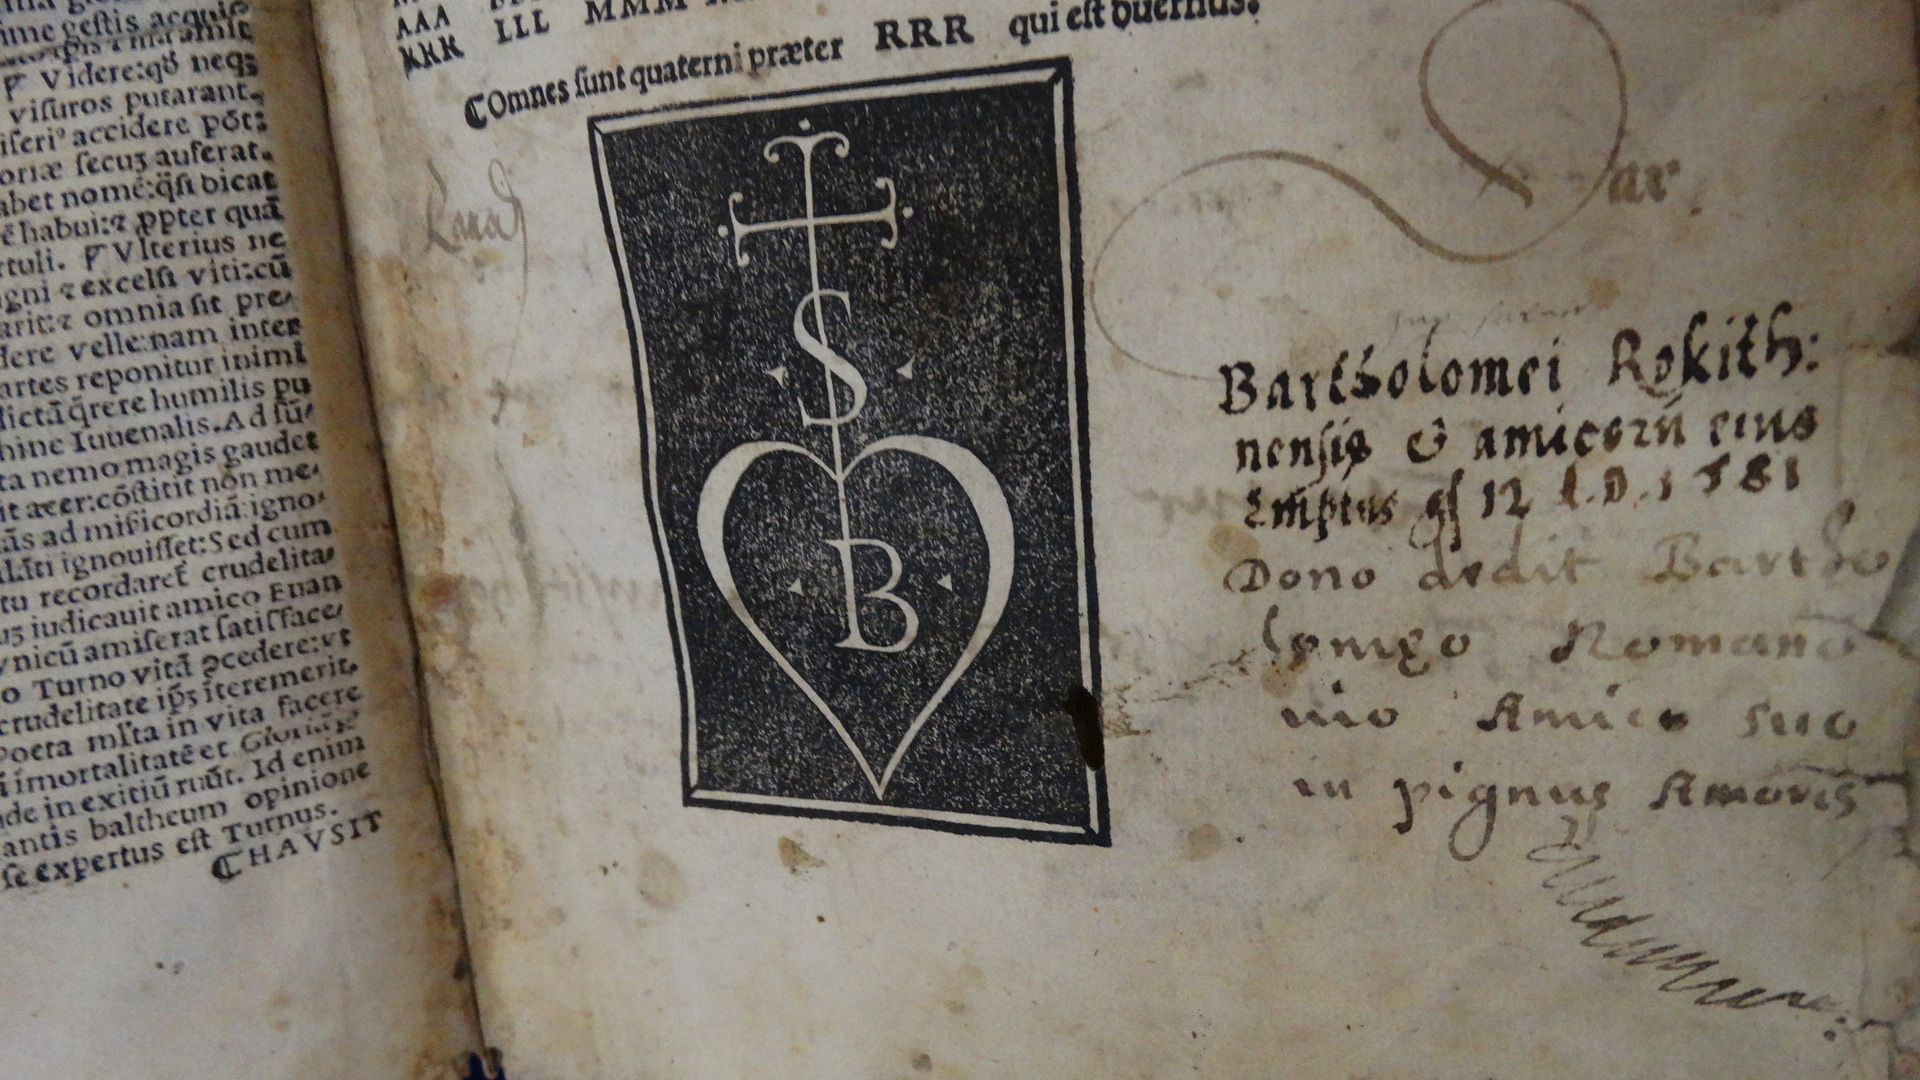 ime gestis acquis
Videre:qđ neqʒ
visuros putarant.
iseriꝰ accidere pōt:
oriæ secuʒ auferat.
abet nomē:q̄si dicat
ē habui:⁊ ꝓpter quā
rtuli. Vlterius ne
gni ⁊ excelsi viti:cū
arit:⁊ omnia sit pre
dere velle:nam inter
artes reponitur inimi
dictā q̄rere humilis pu
hine Iuuenalis. Ad sū
ta nemo magis gaudet
it acer:cōstitit non me
ās ad misicordiā:igno
lāti ignouisset: Sed cum
tu recordaret crudelita
uʒ iudicauit amico Euan
ynicū amiserat satisface
o Turno vitā ꝯcedere:vt
crudelitate ip̄s iteremerit.
Poeta mīta in vita facere
ī imortalitatē et Gloriā
de in exitiū ruūt. Id enim
antis baltheum opinione
se expertus est Turnus.
HAVSIT
AAA LLL MMM
KKK
Omnes sunt quaterni præter RRR qui est duernus.
S
B
ar
Bartholomei Rokith:
nensis & amicorū eius
Emptus gſ 12 A.D. 1581
Dono dedit Bartho
lomeo Romano
uio Amico suo
in pignus Amoris